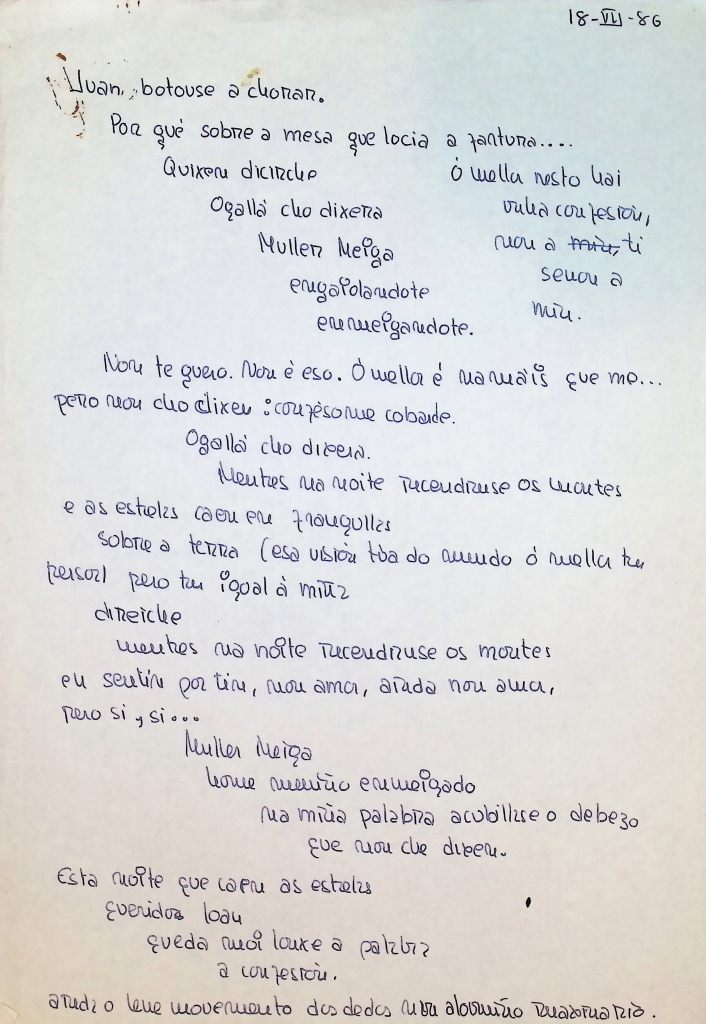 18-VII-86
Xuan, botouse a chorar.
Por qué sobre a mesa que locía a fartura....
Quixen dicirche
Ogallá cho dixera
Muller Meiga
engaiolandote
enmeigandote.
Ó mellor nesto hai
unha confesión,
non a min, ti
senon a
min.
Non te quero. Non é eso. Ó mellor é namáis que me...
pero non cho dixen : confésome cobarde.
Ogallá cho dixera.
Mentres na noite incendianse os montes
e as estrelas caen en
sobre a terra (esa visión túa do mundo ó mellor tu
persoal pero tu igoal á miña
direiche
mentres na noite incendianse os montes
eu sentin por tin, non amor, ainda non amor,
pero si, si...
Muller Meiga
home meniño enmeigado
na miña palabra acubillase o debezo
que non che dixen.
Esta noite que caen as estrelas
querido Ioan
queda moi lonxe a palabra
a confesión.
ainda o leve movemento dos dedos nun aloumiño imaxinario.